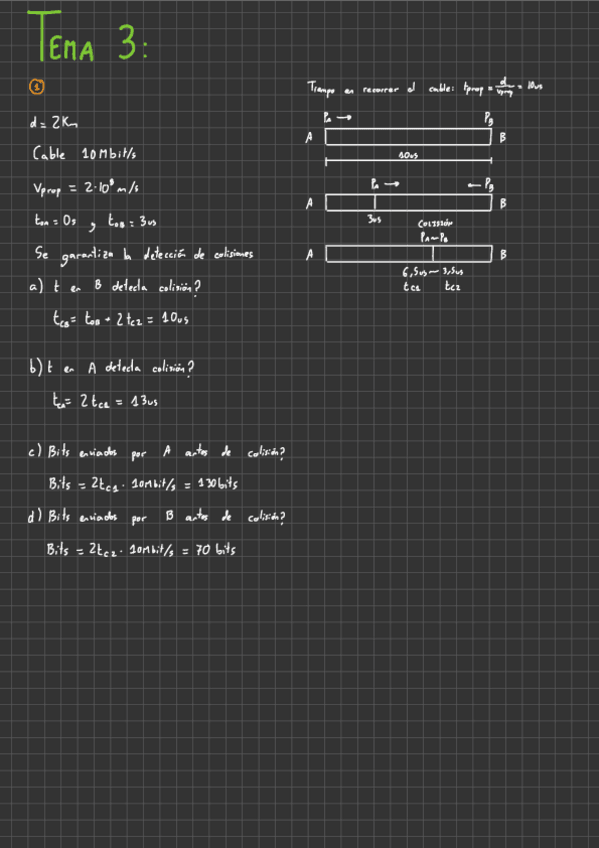 TEMA 3:
1
d = 2Km
Cable 10Mbit/s
Vprop = 2·10⁸ m/s
t0A = 0s y t0B = 3us
Se garantiza la detección de colisiones
a) t en B detecta colisión?
tCB = t0B + 2tC2 = 10us
b) t en A detecta colisión?
tCA = 2tC1 = 13us
c) Bits enviados por A antes de colisión?
Bits = 2tC1 · 10Mbit/s = 130bits
d) Bits enviados por B antes de colisión?
Bits = 2tC2 · 10Mbit/s = 70 bits
Tiempo en recorrer el cable: tprop = d/Vprop = 10us
PA → PB
A B
10us
PA → ← PB
A B
3us
COLISIÓN
PA ~ PB
A B
6,5us ~ 3,5us
tC1 tC2